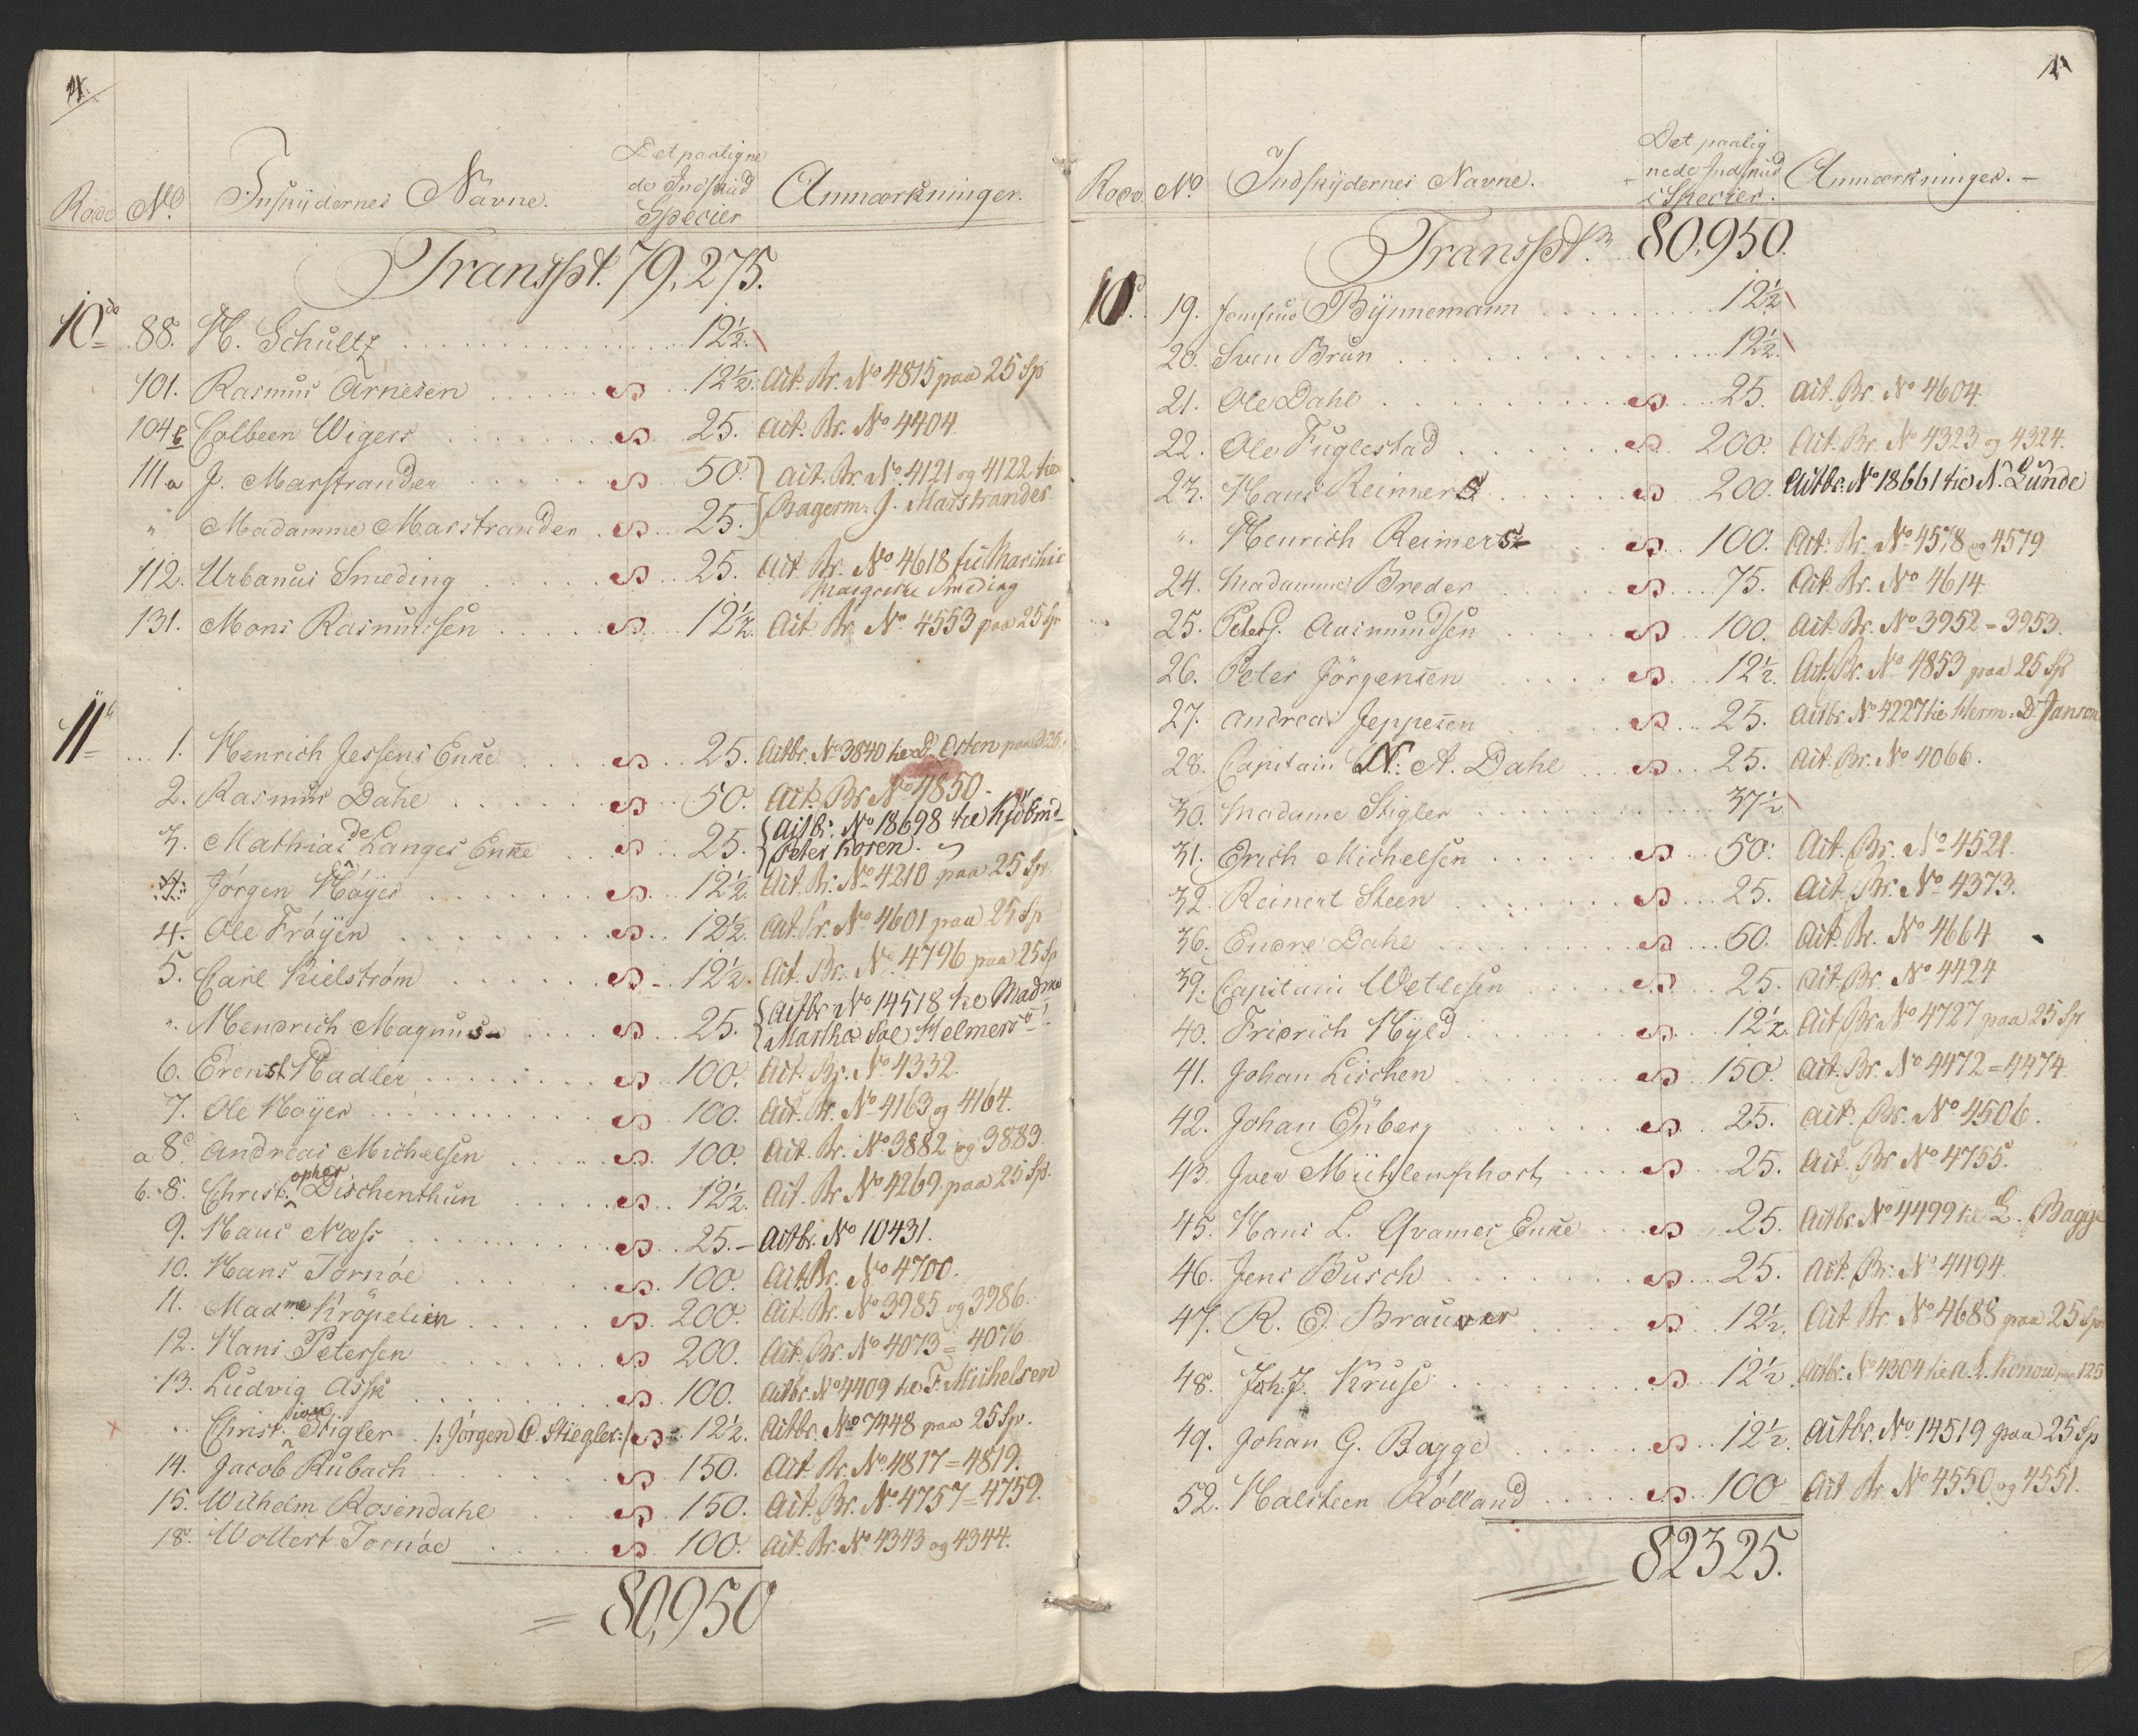 Rode No. Indskydernes Navne. Det paaligne de Indskud Specier Anmærkninger.
Transpt. 79,275.
10de 88. H. Schultz 12½.
101. Rasmus Arnesen 12½. Act. Br. No 4815 paa 25 Sp
104 b Colbeen Wigers 25. Act. Br. No 4404
111 a J. Marstrander 50. Act. Br. No 4121 og 4122 til
" Madamme Marstrander 25. Bagerm. J. Marstrander
112. Urbanus Smeding 25. Act. Br. No 4618 til
Margrethe Smeding
131. Mons Rasmussen 12½. Act Br. No 4553 paa 25 Sp
11te 1. Henrich Jessens Enke 25. Actbr. No 3840 til D. Osten
2. Rasmus Dahl 50. Act. Br No 4850.
3. Mathias de Langes Enke 25. Actbr. No 18698 til Kjöbmd
Peter Koren.
4. Jörgen Höyer 12½. Act. Br. No 4210 paa 25 Sp.
4. Ole Fröyen 12½. Act. Br. No 4601 paa 25 Sp
5. Carl Kielström 12½. Act. Br. No 4796 paa 25 Sp
". Hendrich Magnus 25. Actbr No 14518 til Madme
Martha Sal Helmers
6. Erenst Hadler 100. Act. Br. No 4332.
7. Ole Höyer 100. Act. Br. No 4163 og 4164.
a 8. Andreas Michelsen 100. Act. Br. No 3882 og 3883.
b. 8. Christopher Dischenthun 12½. Act. Br No 4269 paa 25 Sp.
9. Hans Nafs 25. Actbr. No 10431.
10. Hans Tornöe 100. Act. Br. No 4700.
11. Madme Kröpelien 200. Act. Br. No 3985 og 3986.
12. Hans Petersen 200. Act. Br. No 4073 = 4076
13. Ludvig Ask 100. Actbr. No 4409 til F. Michelsen
" Christian Stigler /: Jörgen C. Stiegler :/ 12½. Actbr. No 7448 paa 25 Sp.
14. Jacob Rubach 150. Act. Br. No 4817 = 4819.
15. Wilhelm Rosendahl 150. Act. Br. No 4757 = 4759.
18. Wollert Tornöe 100. Act. Br. No 4343 og 4344.
80,950
Rode. No. Indskydernes Navne. Det paalig nede Indskud i Specier. Anmærkninger.
Transpt. 80,950.
19. Jomfrue Bynnemann 12½
20. Sven Brun 12½.
21. Ole Dahl 25. Act. Br. No 4604.
22. Ole Fuglestad 200. Act. Br. No 4323 og 4324.
23. Hans Reimers 200. Actbr. No 18661 til N. Lunde
". Henrich Reimers 100. Act. Br. No 4578 og 4579
24. Madamme Breder 75. Act. Br. No 4614
25. Peter J. Aasmundsen 100. Act. Br. No 3952 = 3953.
26. Peter Jörgensen 12½. Act. Br. No 4853 paa 25 Sp
27. Andreas Jeppesen 25. Actbr. No 4227 til Herm. D. Janson
28. Capitain N. A. Dahl 25. Act. Br. No 4066.
30. Madame Stigler 37½
31. Erich Michelsen 50. Act. Br. No 4521.
32. Reinert Steen 25. Act. Br. No 4373.
36. Endre Dahl 50. Act. Br. No 4664
39. Capitain Wetlesen 25. Act Br. No 4424
40. Fridrich Hyld 12½. Act. Br No 4727 paa 25 Sp
41. Johan Lischen 150. Act. Br. No 4472 = 4474.
42. Johan Enberg 25. Act. Br. No 4506.
43. Iver Mühlemphort 25. Act. Br. No 4755.
45. Hans L. Qvames Enke 25. Actbr. No 4499 til L. Bagge
46. Jens Busch 25. Act. Br. No 4494.
47. R. E. Brauner 12½. Act. Br. No 4688 paa 25 Sp
48. Joh. J. Kruse 12½. Actbr. No 4304 til A. L. Konow paa 125
49. Johan G. Bagge 12½. Actbr. No 14519 paa 25 Sp
52. Halsteen Rolland 100 Act. Br No 4550 og 4551.
82325.